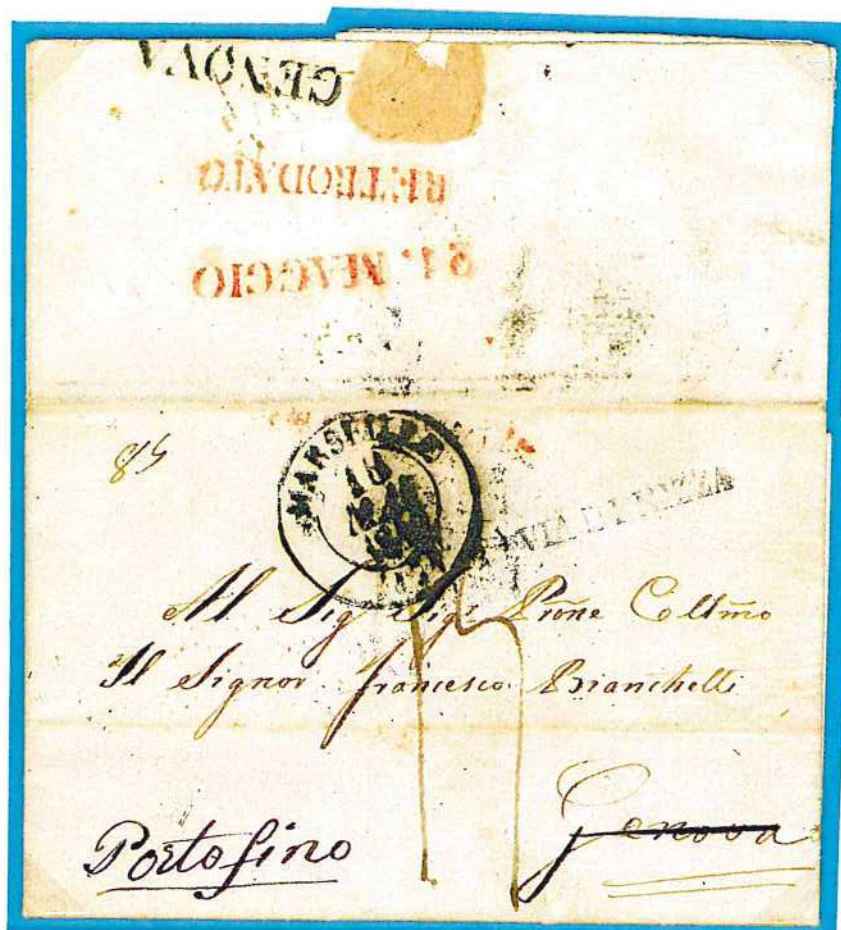 GENOVA
RETRODATO
21. MAGGIO
MARSEILLE
VIA DI NIZZA
Al Sig Sig Prone Colmo
Il Signor francesco Bianchelli
Genova
Portofino